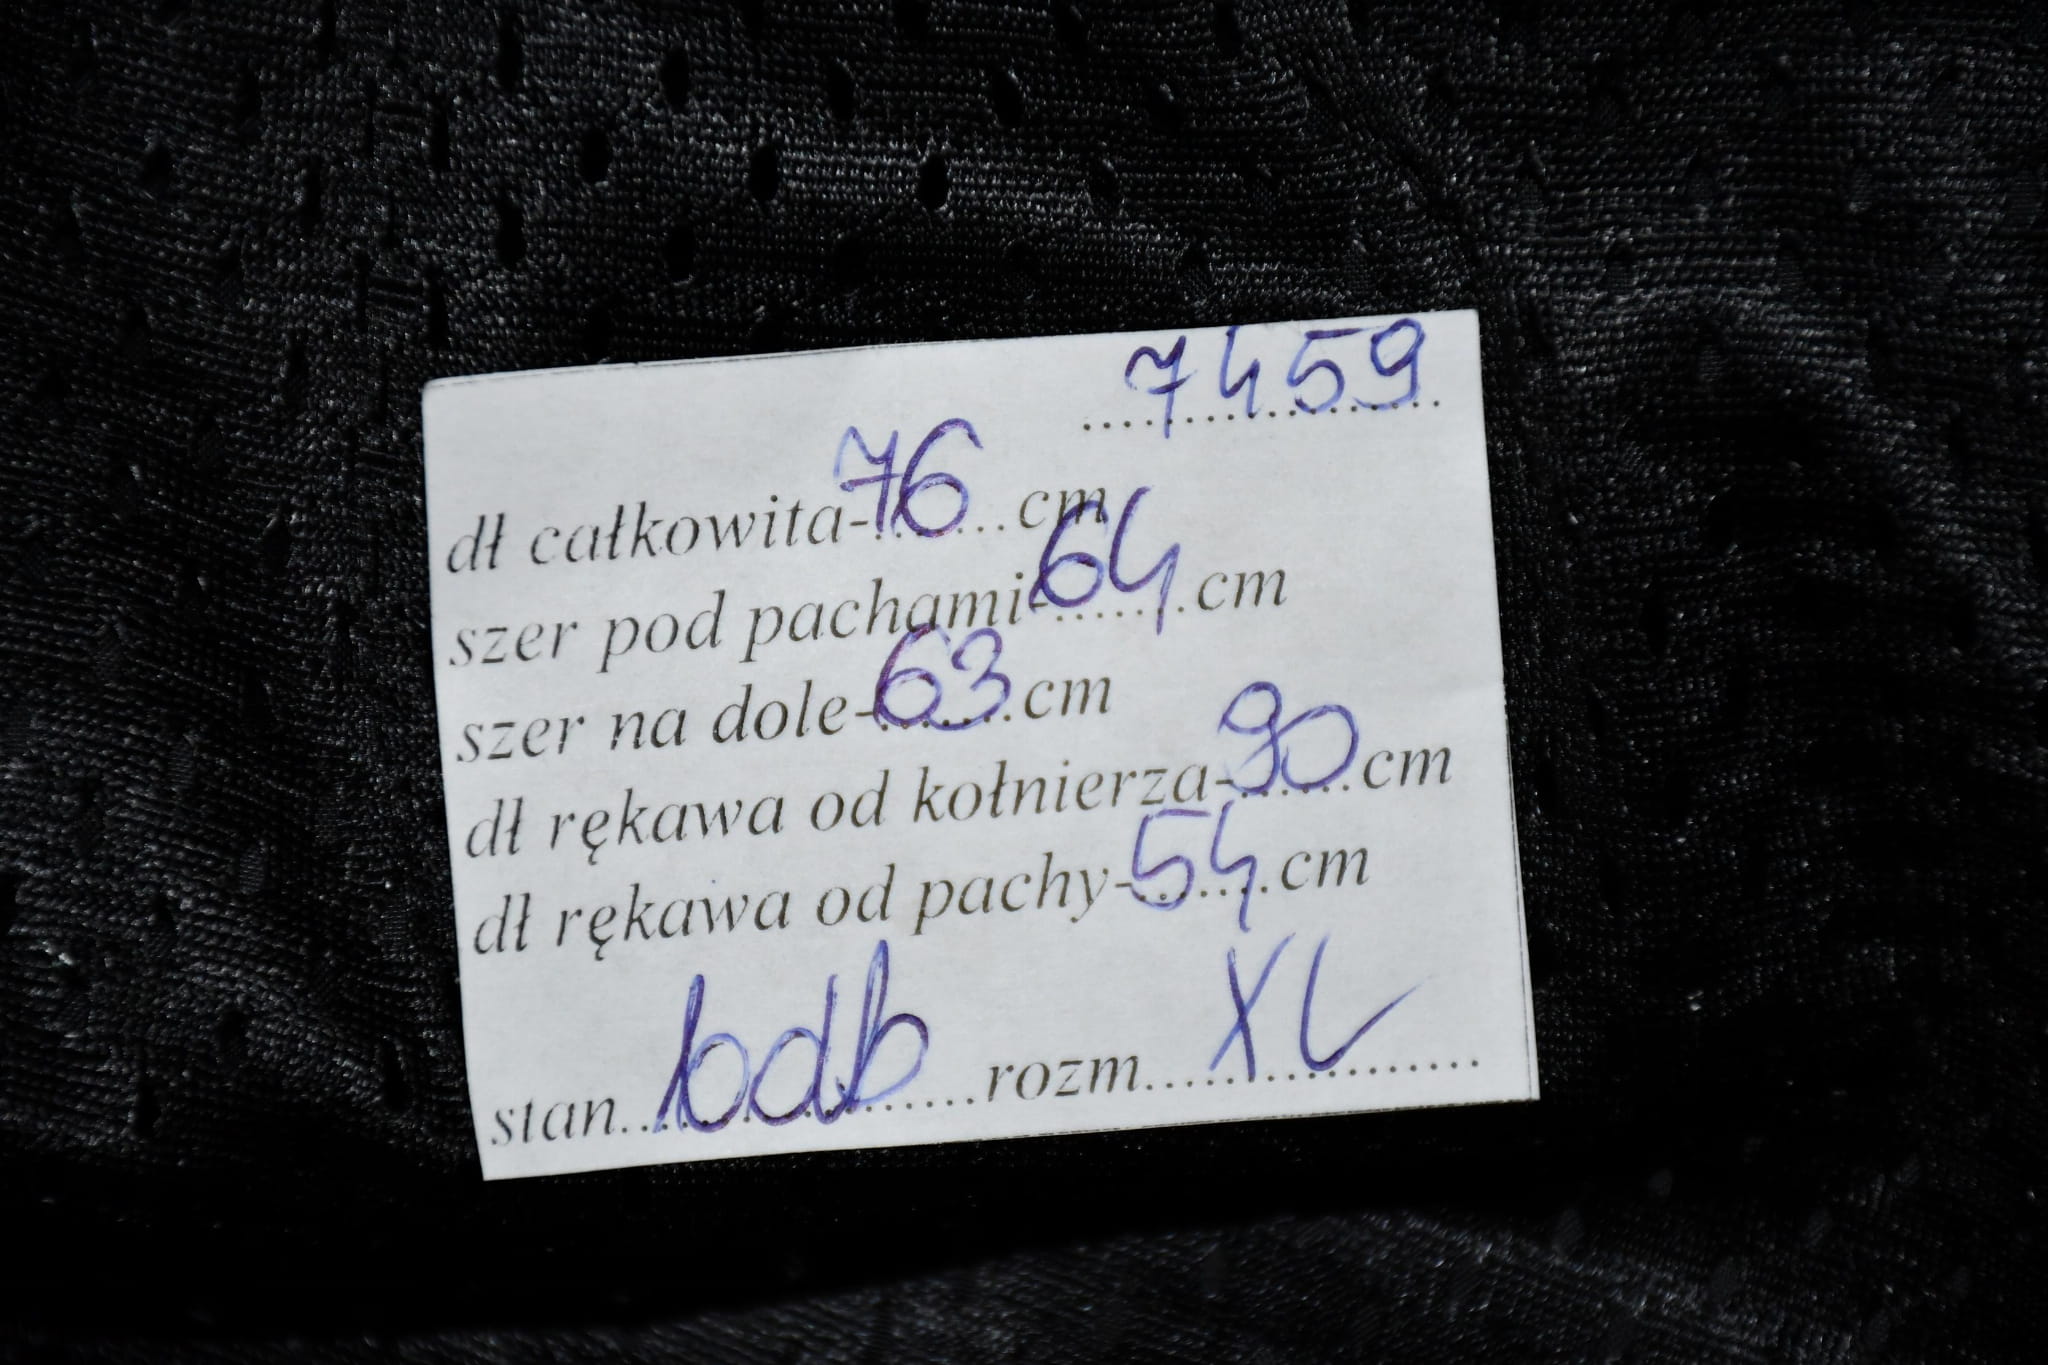 7459
dł całkowita-76...cm
szer pod pachami-64.cm
szer na dole-63.cm
dł rękawa od kołnierza-90.cm
dł rękawa od pachy-54.cm
stan..bdb...rozm....XL....